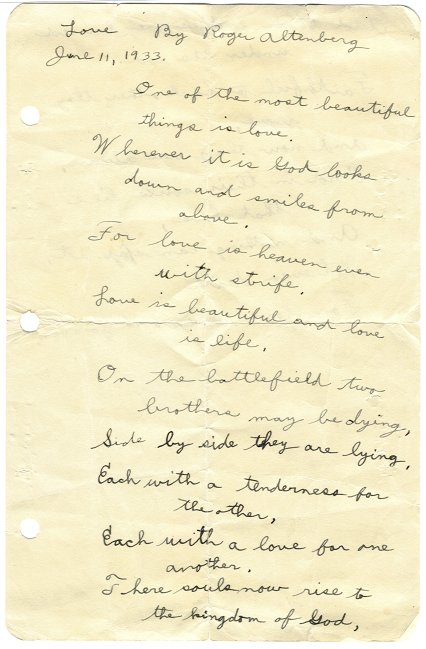 Love By Roger Altenberg
June 11, 1933.
One of the most beautiful
things is love.
Wherever it is God looks
down and smiles from
above.
For love is heaven even
with strife.
Love is beautiful and love
is life.
On the battlefield two
brothers may be dying,
Side by side they are lying.
Each with a tenderness for
the other,
Each with a love for one
another.
There souls now rise to
the kingdom of God,